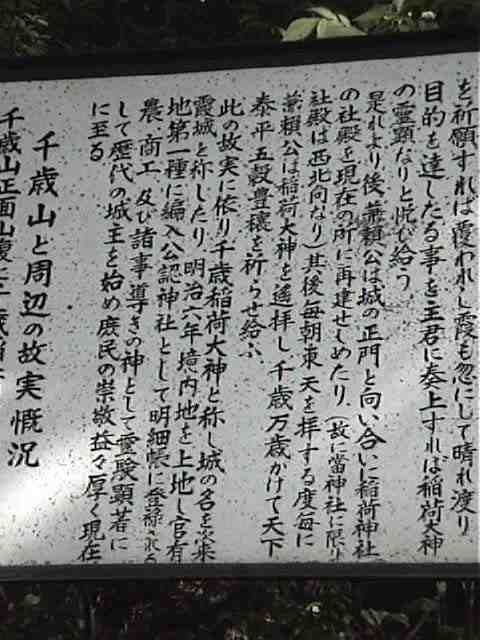 を祈願すれば覆われし霞も忽にして晴れ渡り
目的を達したる事を主君に奏上すれば稲荷大神
の霊顕なりと悦び給う
是れより後、兼頼公は城の正門と向い合いに稲荷神社
の社殿を現在の所に再建せしめたり、(故に當神社に限り
社殿は西北向なり)其後毎朝東天を拝する度毎に
兼頼公は稲荷大神を遙拝し千歳万歳かけて天下
泰平五穀豊穣を祈らせ給ふ、
此の故実に依り千歳稲荷大神と称し城の名を次来
霞城と称したり、明治六年境内地を上地し官有
地第一種に編入公認神社として明細帳に登録される
農、商工、及び諸事導きの神として霊験顕著に
して歴代の城主を始め庶民の崇敬益々厚く現在
に至る
千歳山と周辺の故実慨況
千歳山正面山腹に千歳